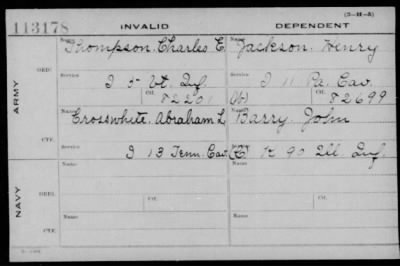 (3-II-A)
113178 INVALID DEPENDENT
Name Thompson. Charles E. Name Jackson. Henry
ARMY ORIG.
Service I 5 Vt. Inf. Service I 11 Pa. Cav.
Ctf. 82201 (W) Ctf. 82699
Crosswhite. Abraham L Barry John
CTF. I 13 Tenn. Cav. K 90 Ill. Inf.
NAVY
Name Name
ORIG.
Service Service
Ctf. Ctf.
Name Name
CTF.